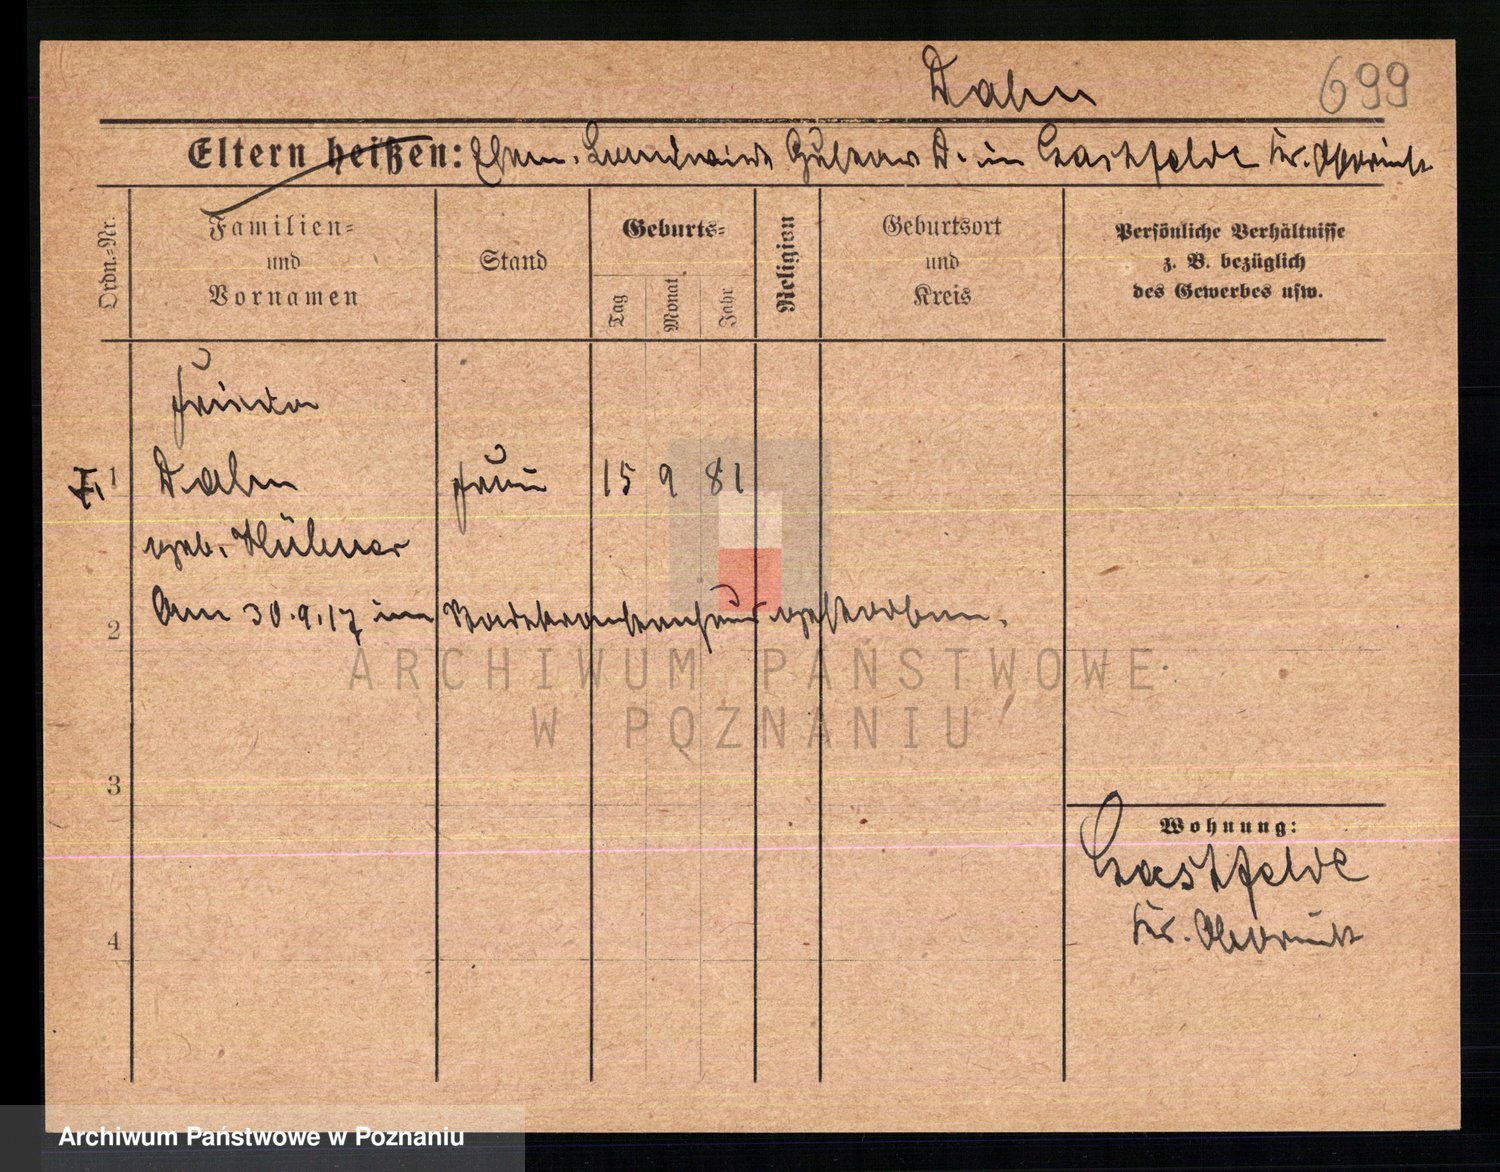 Dahn
699
Eltern heißen: Ehem. Landwirt Gustav D. in Eastfelde Kr. Obornik
Ordn.-Nr.
Familien-
und
Vornamen
Stand
Geburts-
Tag
Monat
Jahr
Religion
Geburtsort
und
Kreis
Persönliche Verhältnisse
z. B. bezüglich
des Gewerbes usw.
Frieda
1 Dahn Frau 15 9 81
geb. Hübner
2 Am 30.9.17 im gestorben.
ARCHIWUM PAŃSTWOWE
W POZNANIU
3
Wohnung:
Eastfelde
4
Kr. Obornik
Archiwum Państwowe w Poznaniu